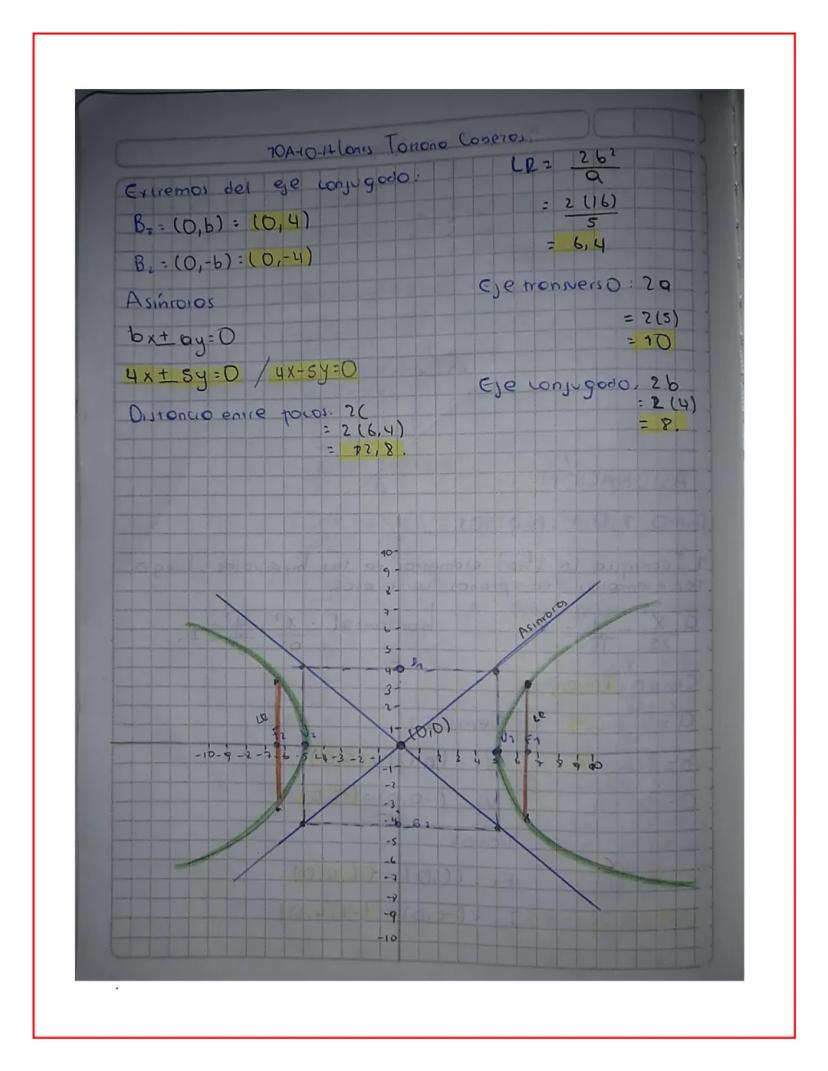 Extremos del eje conjugado:
B₁ = (0,b) = (0,4)
B₂ = (0,-b) = (0,-4)
Asíntotas
bx ± ay = 0
4x ± 5y = 0 / 4x-5y=0
Distancia entre focos. 2C
= 2(6,4)
= 12,8.
LR = 2b²
a
= 2(16)
5
= 6,4
Eje transverso: 2a
= 2(5)
= 10
Eje conjugado. 2b
= 2(4)
= 8.
10
9
8
7
6
5
4
3
2
1
Asíntotas
(0,0)
LR
LR
-10 -9 -8 -7 -6 -5 -4 -3 -2 -1 1 2 3 4 5 6 7 8 9 10
F2
V2
F1
B1
B2
-1
-2
-3
-4
-5
-6
-7
-8
-9
-10